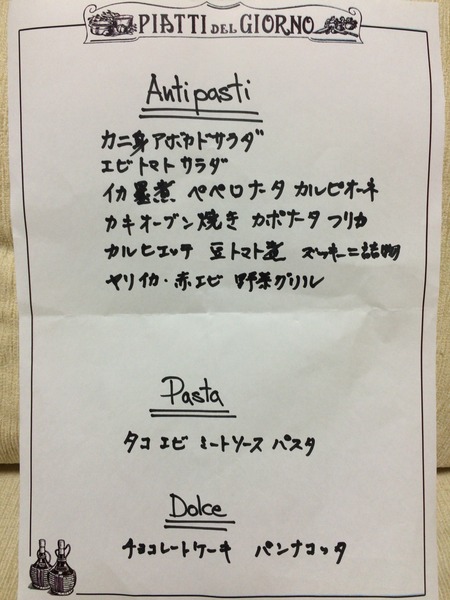 PIATTI DEL GIORNO
Antipasti
カニ身アボカドサラダ
エビトマトサラダ
イカ墨煮 ペペロナータ カルピオーネ
カキオーブン焼き カポナータ フリカ
カルヒエッテ 豆トマト煮 ズッキーニ詰物
ヤリイカ・赤エビ 野菜グリル
Pasta
タコ エビ ミートソース パスタ
Dolce
チョコレートケーキ パンナコッタ